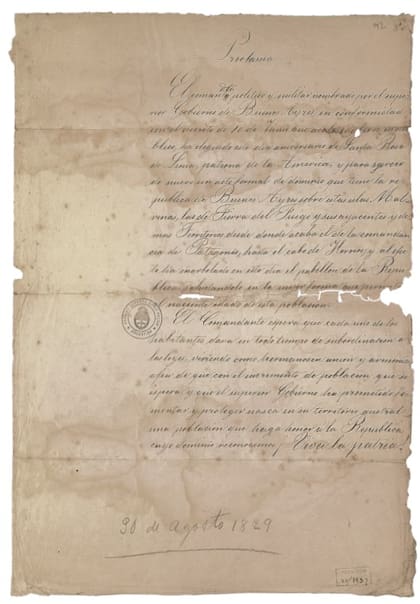 Proclama
El comandte politico y militar nombrado por el supe
rior Gobierno de Buenos Ayres en conformidad
con el decreto de 10 de Junio que acaba de
blico, ha elegido este dia aniversario de Santa Rosa
de Lima, patrona de la America, para ejercer
de nuevo un acto formal de dominio que tiene la re
publica de Buenos Ayres sobre estas islas Mal
vinas, las de Tierra del Fuego y sus adyacentes y de
mas Territorios desde donde acaba el de la comandan
cia de Patagonia, hasta el cabo de Hornos, y al efec
to ha enarbolado en este dia el pabellon de la Repu
blica saludandolo en la mejor forma que permite
el naciente estado de esta poblacion.
El Comandante espera que cada uno de los
habitantes dará en todo tiempo de subordinacion a
las leyes, viviendo como hermanos en union y armonia
afin de que con el incremento de poblacion que se
espera y que el superior Gobierno ha prometido fo
mentar y proteger nasca en su territorio austral
una poblacion que haga honor á la Republica
cuyo dominio reconocemos. ¡Viva la patria!
30 de agosto 1829